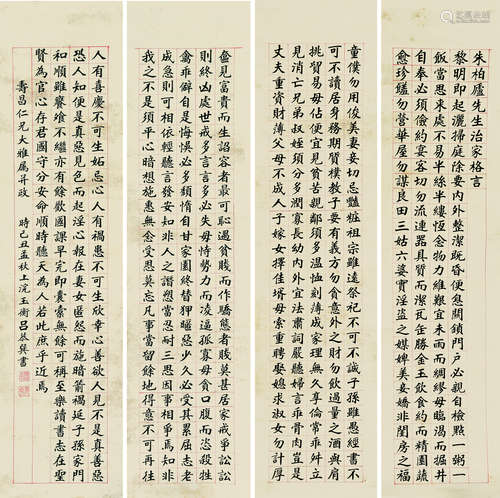 朱柏廬先生治家格言
黎明即起灑掃庭除要內外整潔既昏便息關鎖門戶必親自檢點一粥一
飯當思來處不易半絲半縷恆念物力維艱宜未雨而綢繆毋臨渴而掘井
自奉必須儉約宴客切勿流連器具質而潔瓦缶勝金玉飲食約而精園蔬
愈珍饈勿營華屋勿謀良田三姑六婆實淫盜之媒婢美妾嬌非閨房之福
童僕勿用俊美妻妾切忌豔粧祖宗雖遠祭祀不可不誠子孫雖愚經書不
可不讀居身務期質樸教子要有義方勿貪意外之財勿飲過量之酒與肩
挑貿易毋佔便宜見貧苦親鄰須多溫恤刻薄成家理無久享倫常乖舛立
見消亡兄弟叔姪須分多潤寡長幼內外宜法肅詞嚴聽婦言乖骨肉豈是
丈夫重資財薄父母不成人子嫁女擇佳壻毋索重聘娶媳求淑女勿計厚
奩見富貴而生諂容者最可恥遇貧賤而作驕態者賤莫甚居家戒爭訟訟
則終凶處世戒多言言多必失毋恃勢力而凌逼孤寡毋貪口腹而恣殺牲
禽乖僻自是悔悞必多頹惰自甘家園終替狎暱惡少久必受其累屈志老
成急則可相依輕聽言發安知非人之譖愬當忍耐三思因事相爭焉知非
我之不是須平心暗想施惠無念受恩莫忘凡事當留餘地得意不可再往
人有喜慶不可生妬忌心人有禍患不可生欣幸心善欲人見不是真善惡
恐人知便是真惡見色而起淫心報在妻女匿怨而施暗箭禍延子孫家門
和順雖饔飧不繼亦有餘歡國課早完即囊橐無餘可稱至樂讀書志在聖
賢為官心存君國守分安命順時聽天為人若此庶乎近焉
壽昌仁兄大雅屬并政 時己丑孟秋上浣玉衡呂巽書